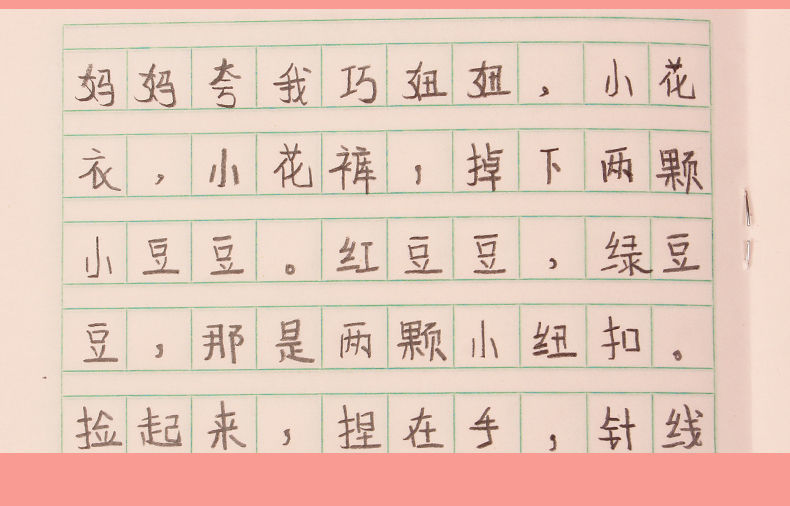 妈妈夸我巧妞妞，小花
衣，小花裤，掉下两颗
小豆豆。红豆豆，绿豆
豆，那是两颗小纽扣。
捡起来，捏在手，针线